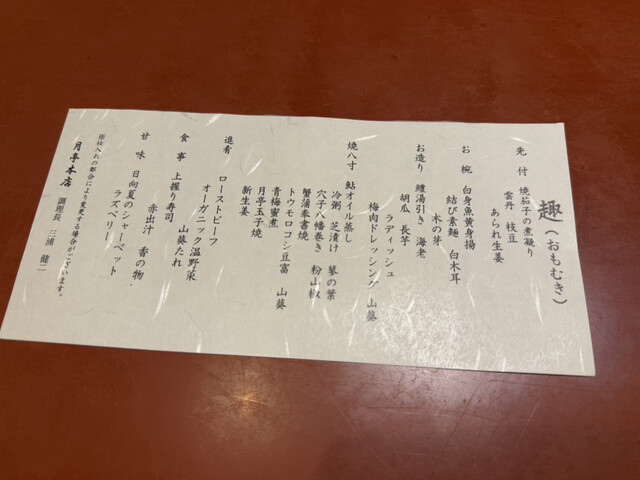 趣(おもむき)
先付 焼茄子の煮凝り
雲丹 枝豆
あられ生姜
お椀 白身魚黄身揚
結び素麺 白木耳
木の芽
お造り 鱧湯引き 海老
胡瓜 長芋
ラディッシュ
梅肉ドレッシング 山葵
焼八寸 鮎オイル蒸し
冷粥 芝漬け 蓼の葉
穴子八幡巻き 粉山椒
蟹浦奉書焼
トウモロコシ豆富 山葵
青梅蜜煮
月亭玉子焼
新生姜
進肴 ローストビーフ
オーガニック温野菜
山葵たれ
食事 上握り寿司
赤出汁 香の物
甘味 日向夏のシャーベット
ラズベリー
※仕入れの都合により変更する場合がございます。
月亭本店 調理長 三浦 健二